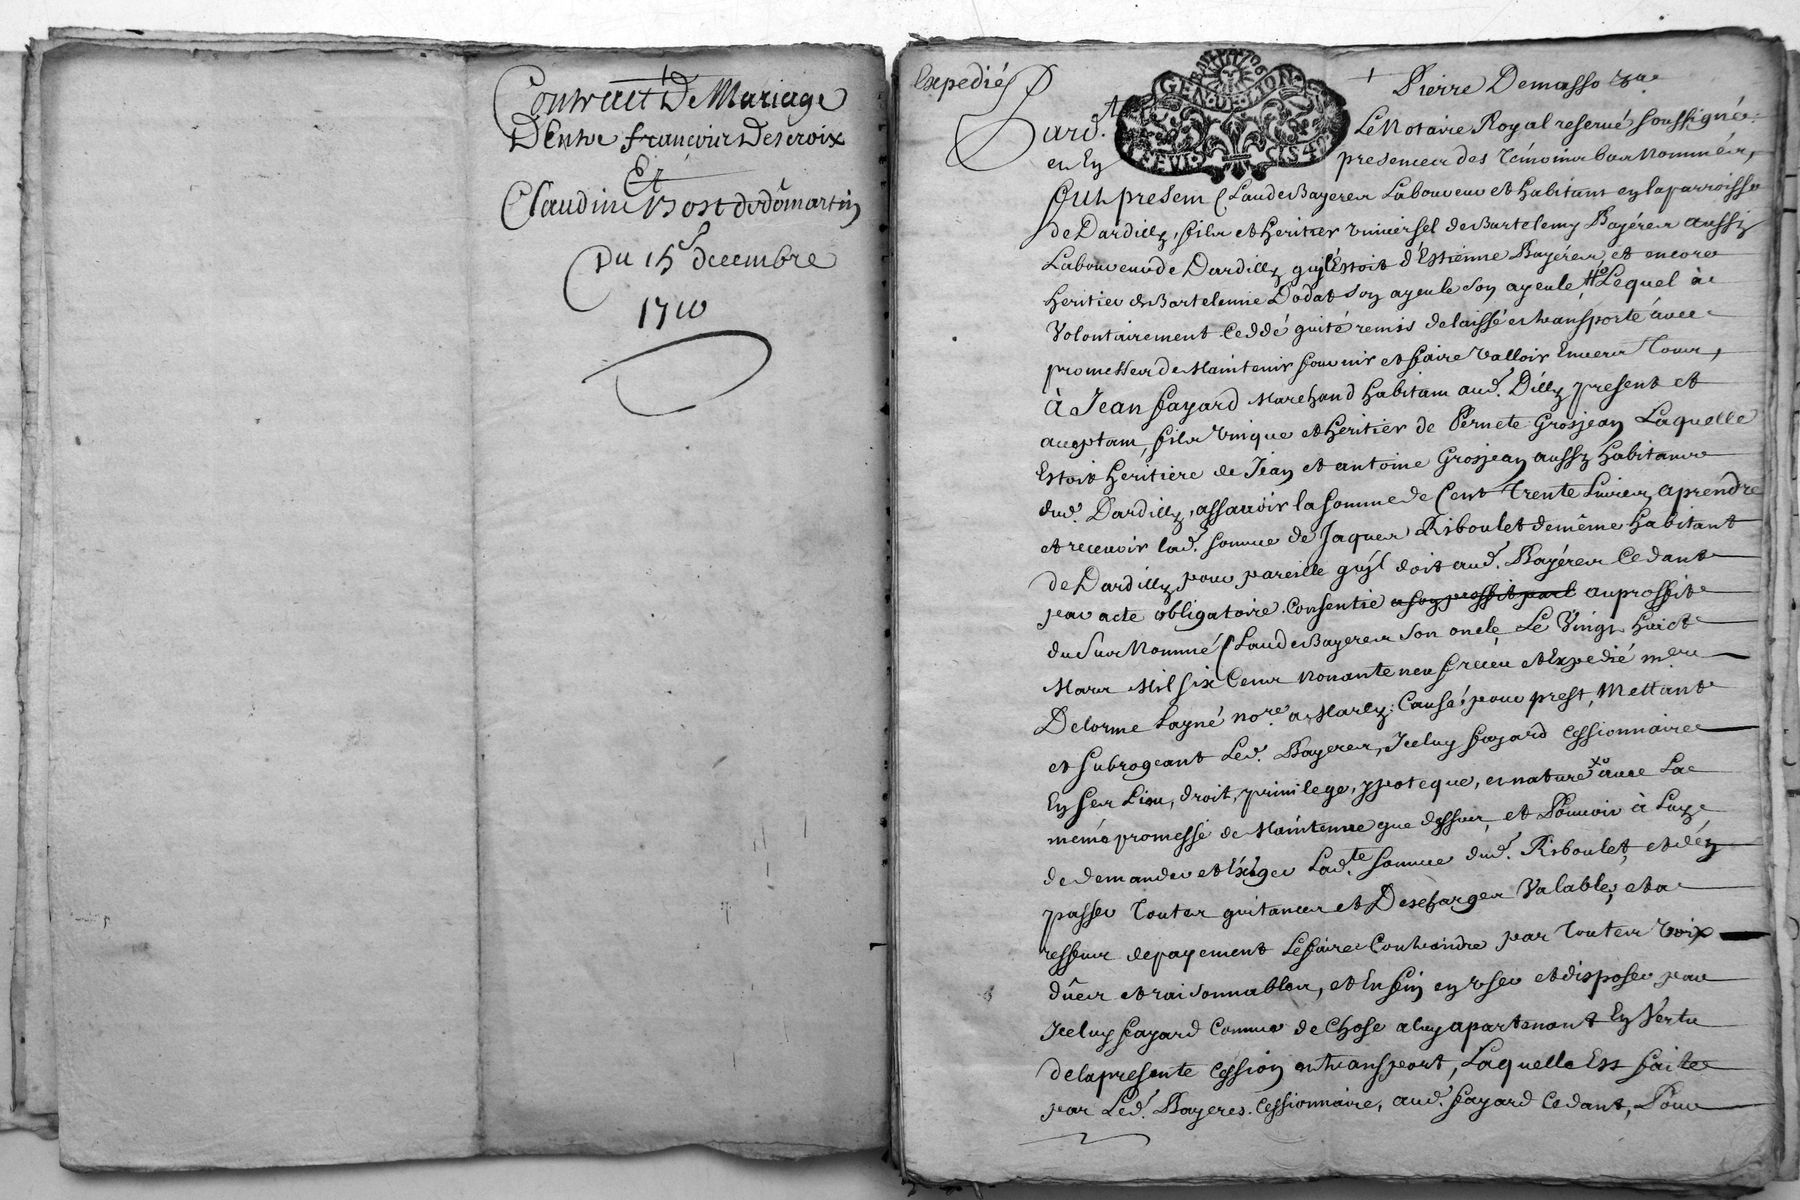 Contract De Mariage
D'Entre francois Descroix
Et
Claudine Bost de domartin
Du 15 decembre
1710
Expedié
GEN·DE·LYON
Pierre Demasso
Pard.t
Le Notaire Royal reservé soussigné
en
presences des témoins bas nommés,
fut present Claude Bayeres Laboureur et habitant en la parroisse
de Dardilly, fils et heritier universel de Bartelemy Bayéres aussy
Laboureur de Dardilly qu'il Estoit d'Estienne Bayéres, et encore
heritier de Bartelemie Dodat son ayeule son ayeule Lequel à
Volontairement Ceddé quité remis delaissé et transporté avec
promesses de Maintenir fournir et faire valloir Envers tous,
à Jean fayard Marchand habitant aud. Dilly present et
acceptant, fils unique et heritier de Pernete Grosjean Laquelle
Estoit heritiere de Jean et antoine Grosjean aussy habitans
dud. Dardilly, assavoir la somme de Cent trente Livres, a prendre
et recevoir lad. somme de Jaques Riboulet de même habitant
de Dardilly pour pareille qu'il doit aud. Bayéres Cedant
par acte obligatoire Consentie a son proffit par au proffit
du sus Nommé Claude Bayeres son oncle Le Vingt huict
Mars Mil six Cens nonante neuf receu et Expedié
Delorme Layné no.re a Marcy. Causé pour prest, Mettant
et subrogeant Led. Bayeres, Iceluy fayard Cessionnaire
En ses Lieu, droit, privilege, ypoteque, et nature avec La
même promesse de Maintenue que dessus, et Pouvoir à Luy
de demander et Exiger Lad.te somme dud. Riboulet, et d'en
passer toutes quitances et Descharges Valables, et a
reffus de payement Le faire Contraindre par toutes voix
dûes et raisonnables, et Enfin en user et disposer par
Iceluy fayard Comme de chose a luy apartenant En Vertu
de la presente Cession et transport, Laquelle Est faite
par Led. Bayeres. Cessionnaire, aud. fayard Cedant, Pour